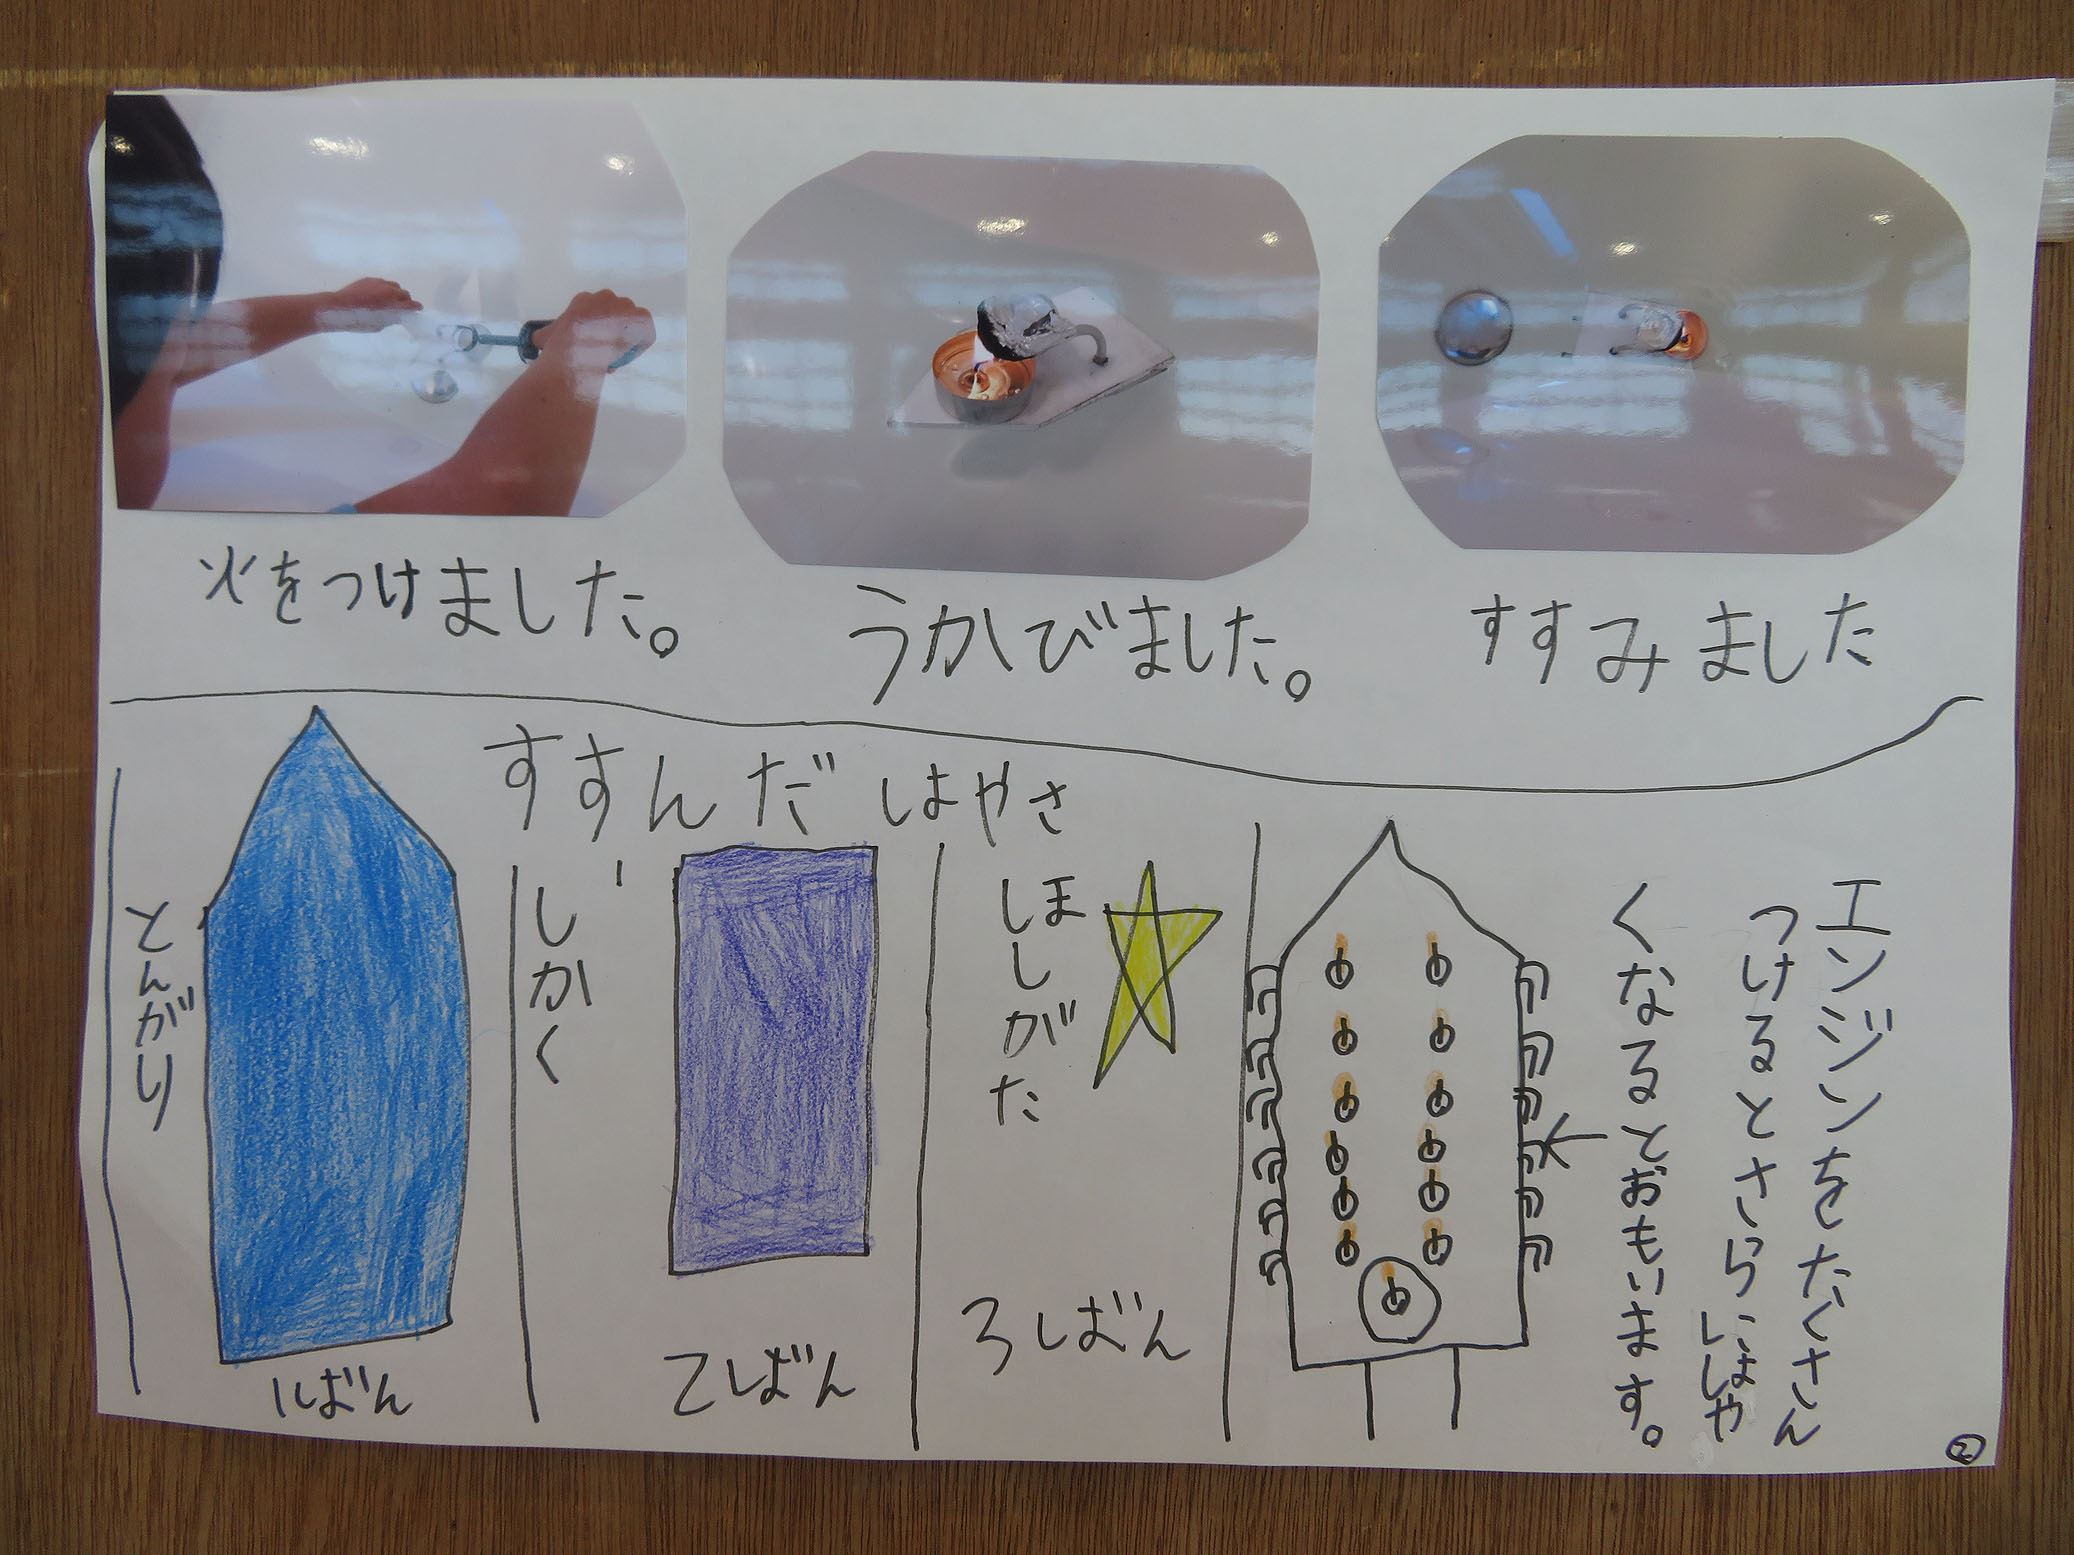 火をつけました。
うかびました。
すすみました
すすんだはやさ
とんがり
1ばん
しかく
2ばん
ほしがた
3ばん
エンジンをたくさん
つけるとさらにはや
くなるとおもいます。
②